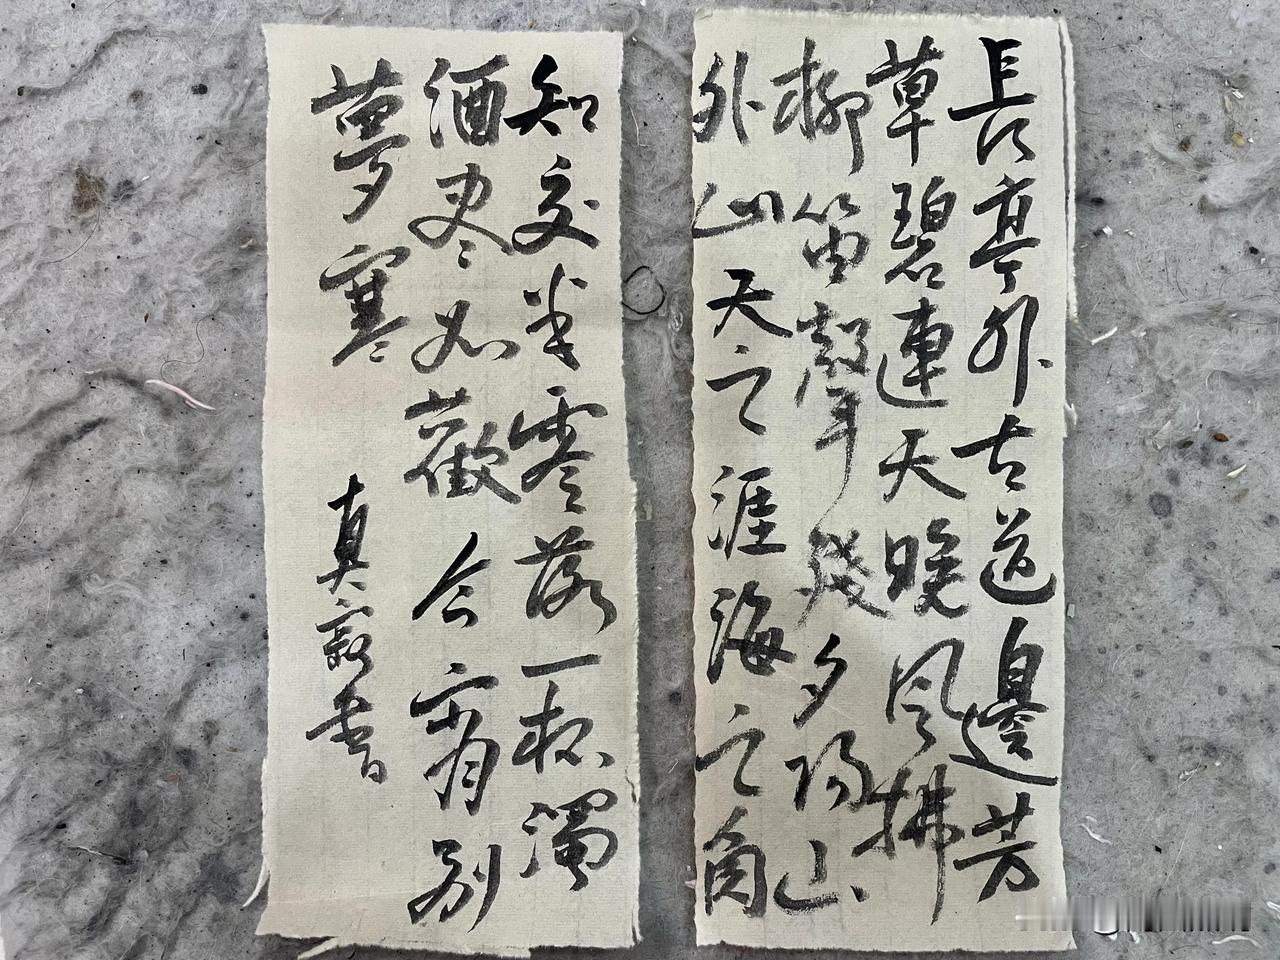 長亭外古道邊芳
草碧連天晚风拂
柳笛聲殘夕陽山
外山天之涯海之角
知交半零落一杯濁
酒尽必歡今宵有别
夢寒
真寂書